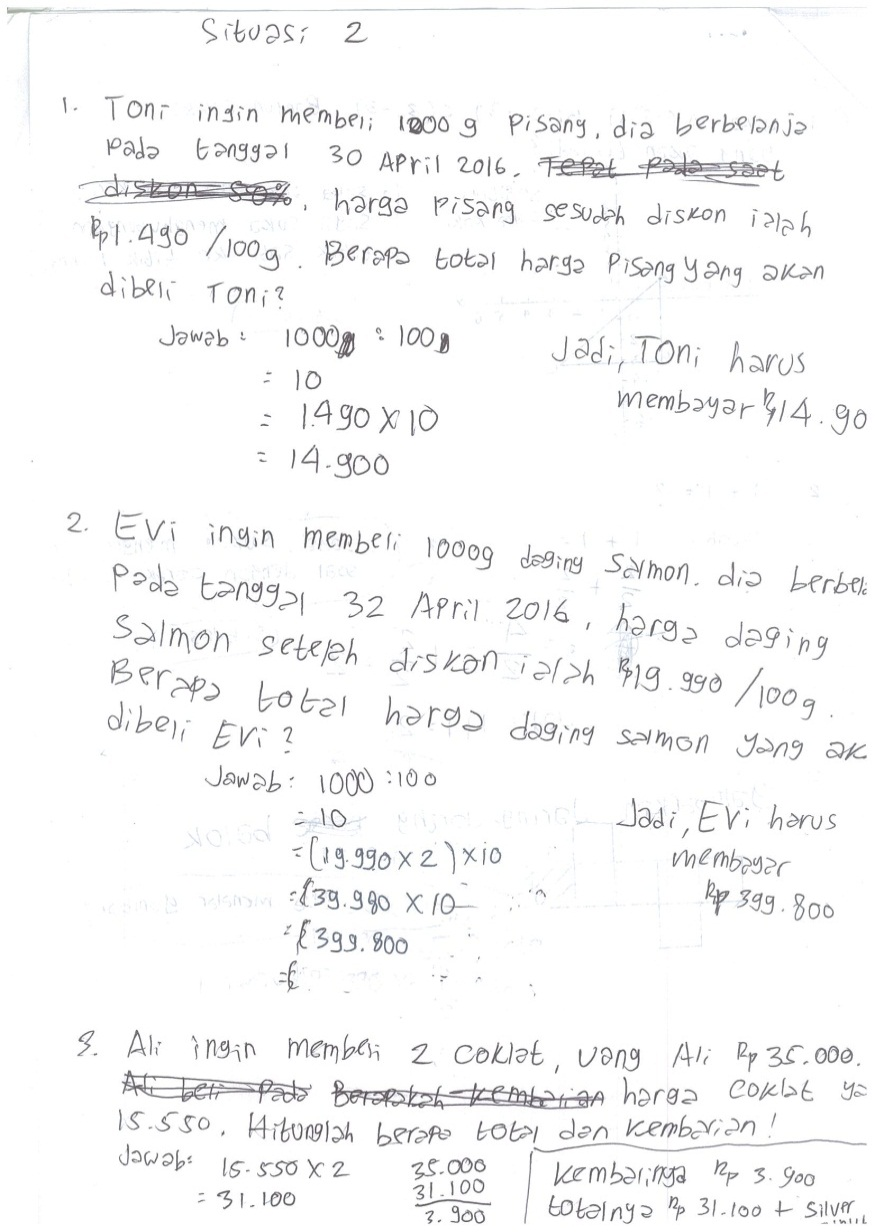 Situasi 2
1. Toni ingin membeli 1000 g Pisang, dia berbelanja
pada tanggal 30 April 2016. Tepat pada saat
diskon 50%, harga pisang sesudah diskon ialah
Rp1.490 /100g. Berapa total harga Pisang yang akan
dibeli Toni?
Jawab : 1000g : 100g
= 10
= 1.490 X 10
= 14.900
Jadi, Toni harus
membayar Rp14.90
2. Evi ingin membeli 1000g daging salmon. dia berbela
Pada tanggal 32 April 2016, harga daging
Salmon setelah diskon ialah Rp19.990 /100g.
Berapa total harga daging salmon yang ak
dibeli Evi?
Jawab : 1000 : 100
= 10
= (19.990 X 2) X 10
= 39.980 X 10
= 399.800
=
Jadi, Evi harus
membayar
Rp 399.800
3. Ali ingin membeli 2 Coklat, uang Ali Rp 35.000.
Ali beli pada Berapakah kembalian harga coklat ya
15.550. Hitunglah berapa total dan kembalian!
Jawab: 15.550 X 2
= 31.100
35.000
31.100
3.900
kembalinya Rp 3.900
totalnya Rp 31.100 + Silver